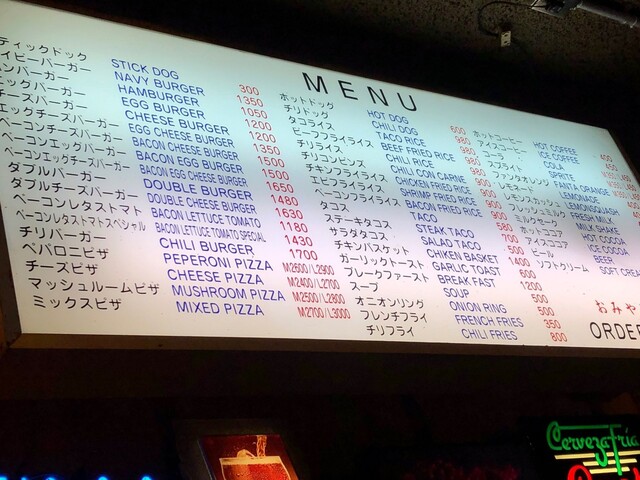 MENU
ティックドック STICK DOG 300
イビーバーガー NAVY BURGER 1350
ンバーガー HAMBURGER 1050
ッグバーガー EGG BURGER 1200
チーズバーガー CHEESE BURGER 1200
エッグチーズバーガー EGG CHEESE BURGER 1350
ベーコンチーズバーガー BACON CHEESE BURGER 1500
ベーコンエッグバーガー BACON EGG BURGER 1500
ベーコンエッグチーズバーガー BACON EGG CHEESE BURGER 1650
ダブルバーガー DOUBLE BURGER 1480
ダブルチーズバーガー DOUBLE CHEESE BURGER 1630
ベーコンレタストマト BACON LETTUCE TOMATO 1180
ベーコンレタストマトスペシャル BACON LETTUCE TOMATO SPECIAL 1430
チリバーガー CHILI BURGER 1700
ペパロニピザ PEPERONI PIZZA M2600/L2900
チーズピザ CHEESE PIZZA M2400/L2700
マッシュルームピザ MUSHROOM PIZZA M2500/L2800
ミックスピザ MIXED PIZZA M2700/L3000
ホットドッグ HOT DOG 600
チリドッグ CHILI DOG 980
タコライス TACO RICE 980
ビーフフライライス BEEF FRIED RICE
チリライス CHILI RICE
チリコンビンズ CHILI CON CARNE
チキンフライライス CHICKEN FRIED RICE 900
エビフライライス SHRIMP FRIED RICE 900
コンフライライス BACON FRIED RICE 900
タコス TACO 580
ステーキタコス STEAK TACO 700
サラダタコス SALAD TACO 500
チキンバスケット CHIKEN BASKET 1400
ガーリックトースト GARLIC TOAST 600
ブレークファースト BREAK FAST 1200
スープ SOUP 500
オニオンリング ONION RING 500
フレンチフライ FRENCH FRIES 350
チリフライ CHILI FRIES 800
ホットコーヒー HOT COFFEE 400
アイスコーヒー ICE COFFEE
コーラ COLA
スプライト SPRITE
ファンタオレンジ FANTA ORANGE
レモネード LEMONADE
レモンスカッシュ LEMONSQUASH
ミルクセーキ MILK SHAKE
ホットココア HOT COCOA
アイスココア ICE COCOA
ビール BEER
ソフトクリーム SOFT CRE
おみや
ORDER
Cerveza fría